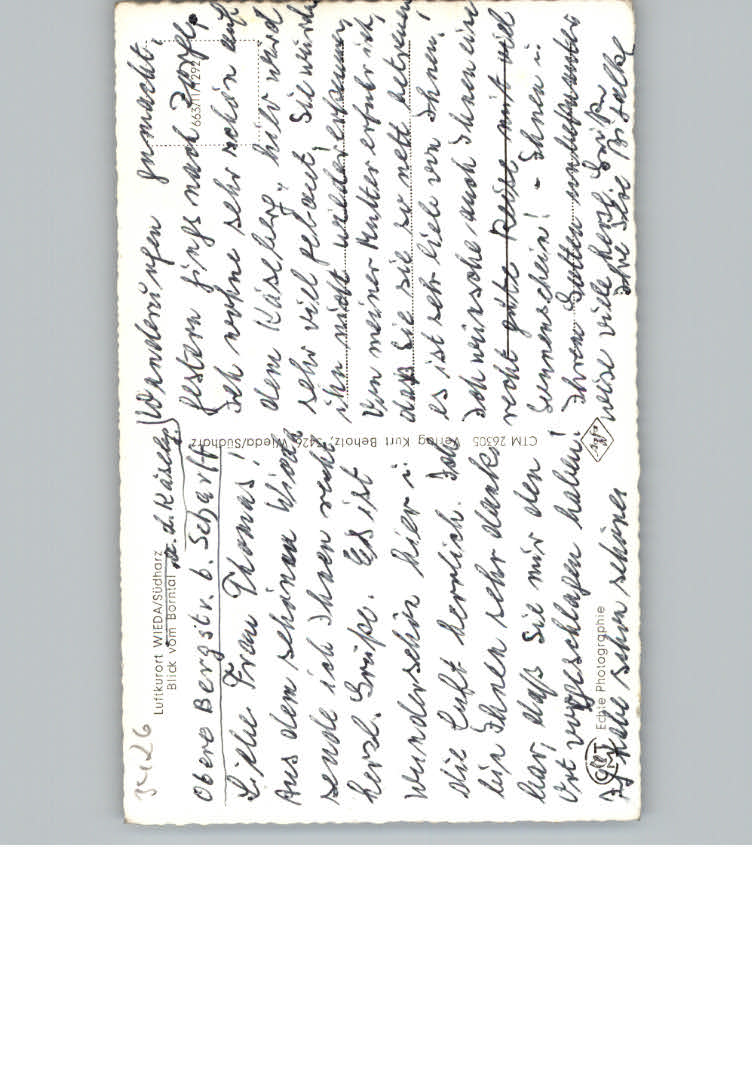 3426
Luftkurort WIEDA/Südharz
Blick vom Borntal
Obere Bergstr. b. Scharff
Liebe Frau Thomas!
Aus dem schönen Wieda
sende ich Ihnen recht
herzl. Grüße. Es ist
wunderschön hier u.
die Luft herrlich. Ich
bin Ihnen sehr dank-
bar, daß Sie mir den
Ort vorgeschlagen haben!
Habe schon schöne
CMT
Echte Photographie
CTM 26305 Verlag Kurt Beholz, 3426 Wieda/Südharz
Agfa
663/11/1292
Wanderungen gemacht,
gestern gings nach Zorge.
Ich wohne sehr schön auf
dem Käseberg, hier wird
sehr viel gebaut, Sie würden
ihn nicht wieder erkennen,
Von meiner Mutter erfuhr ich,
daß Sie sie so nett betreuen,
es ist sehr lieb von Ihnen,
Ich wünsche auch Ihnen eine
recht gute Reise mit viel
Sonnenschein! - Ihnen u.
Ihrem Gatten
viele herzl. Grüße
Ihre